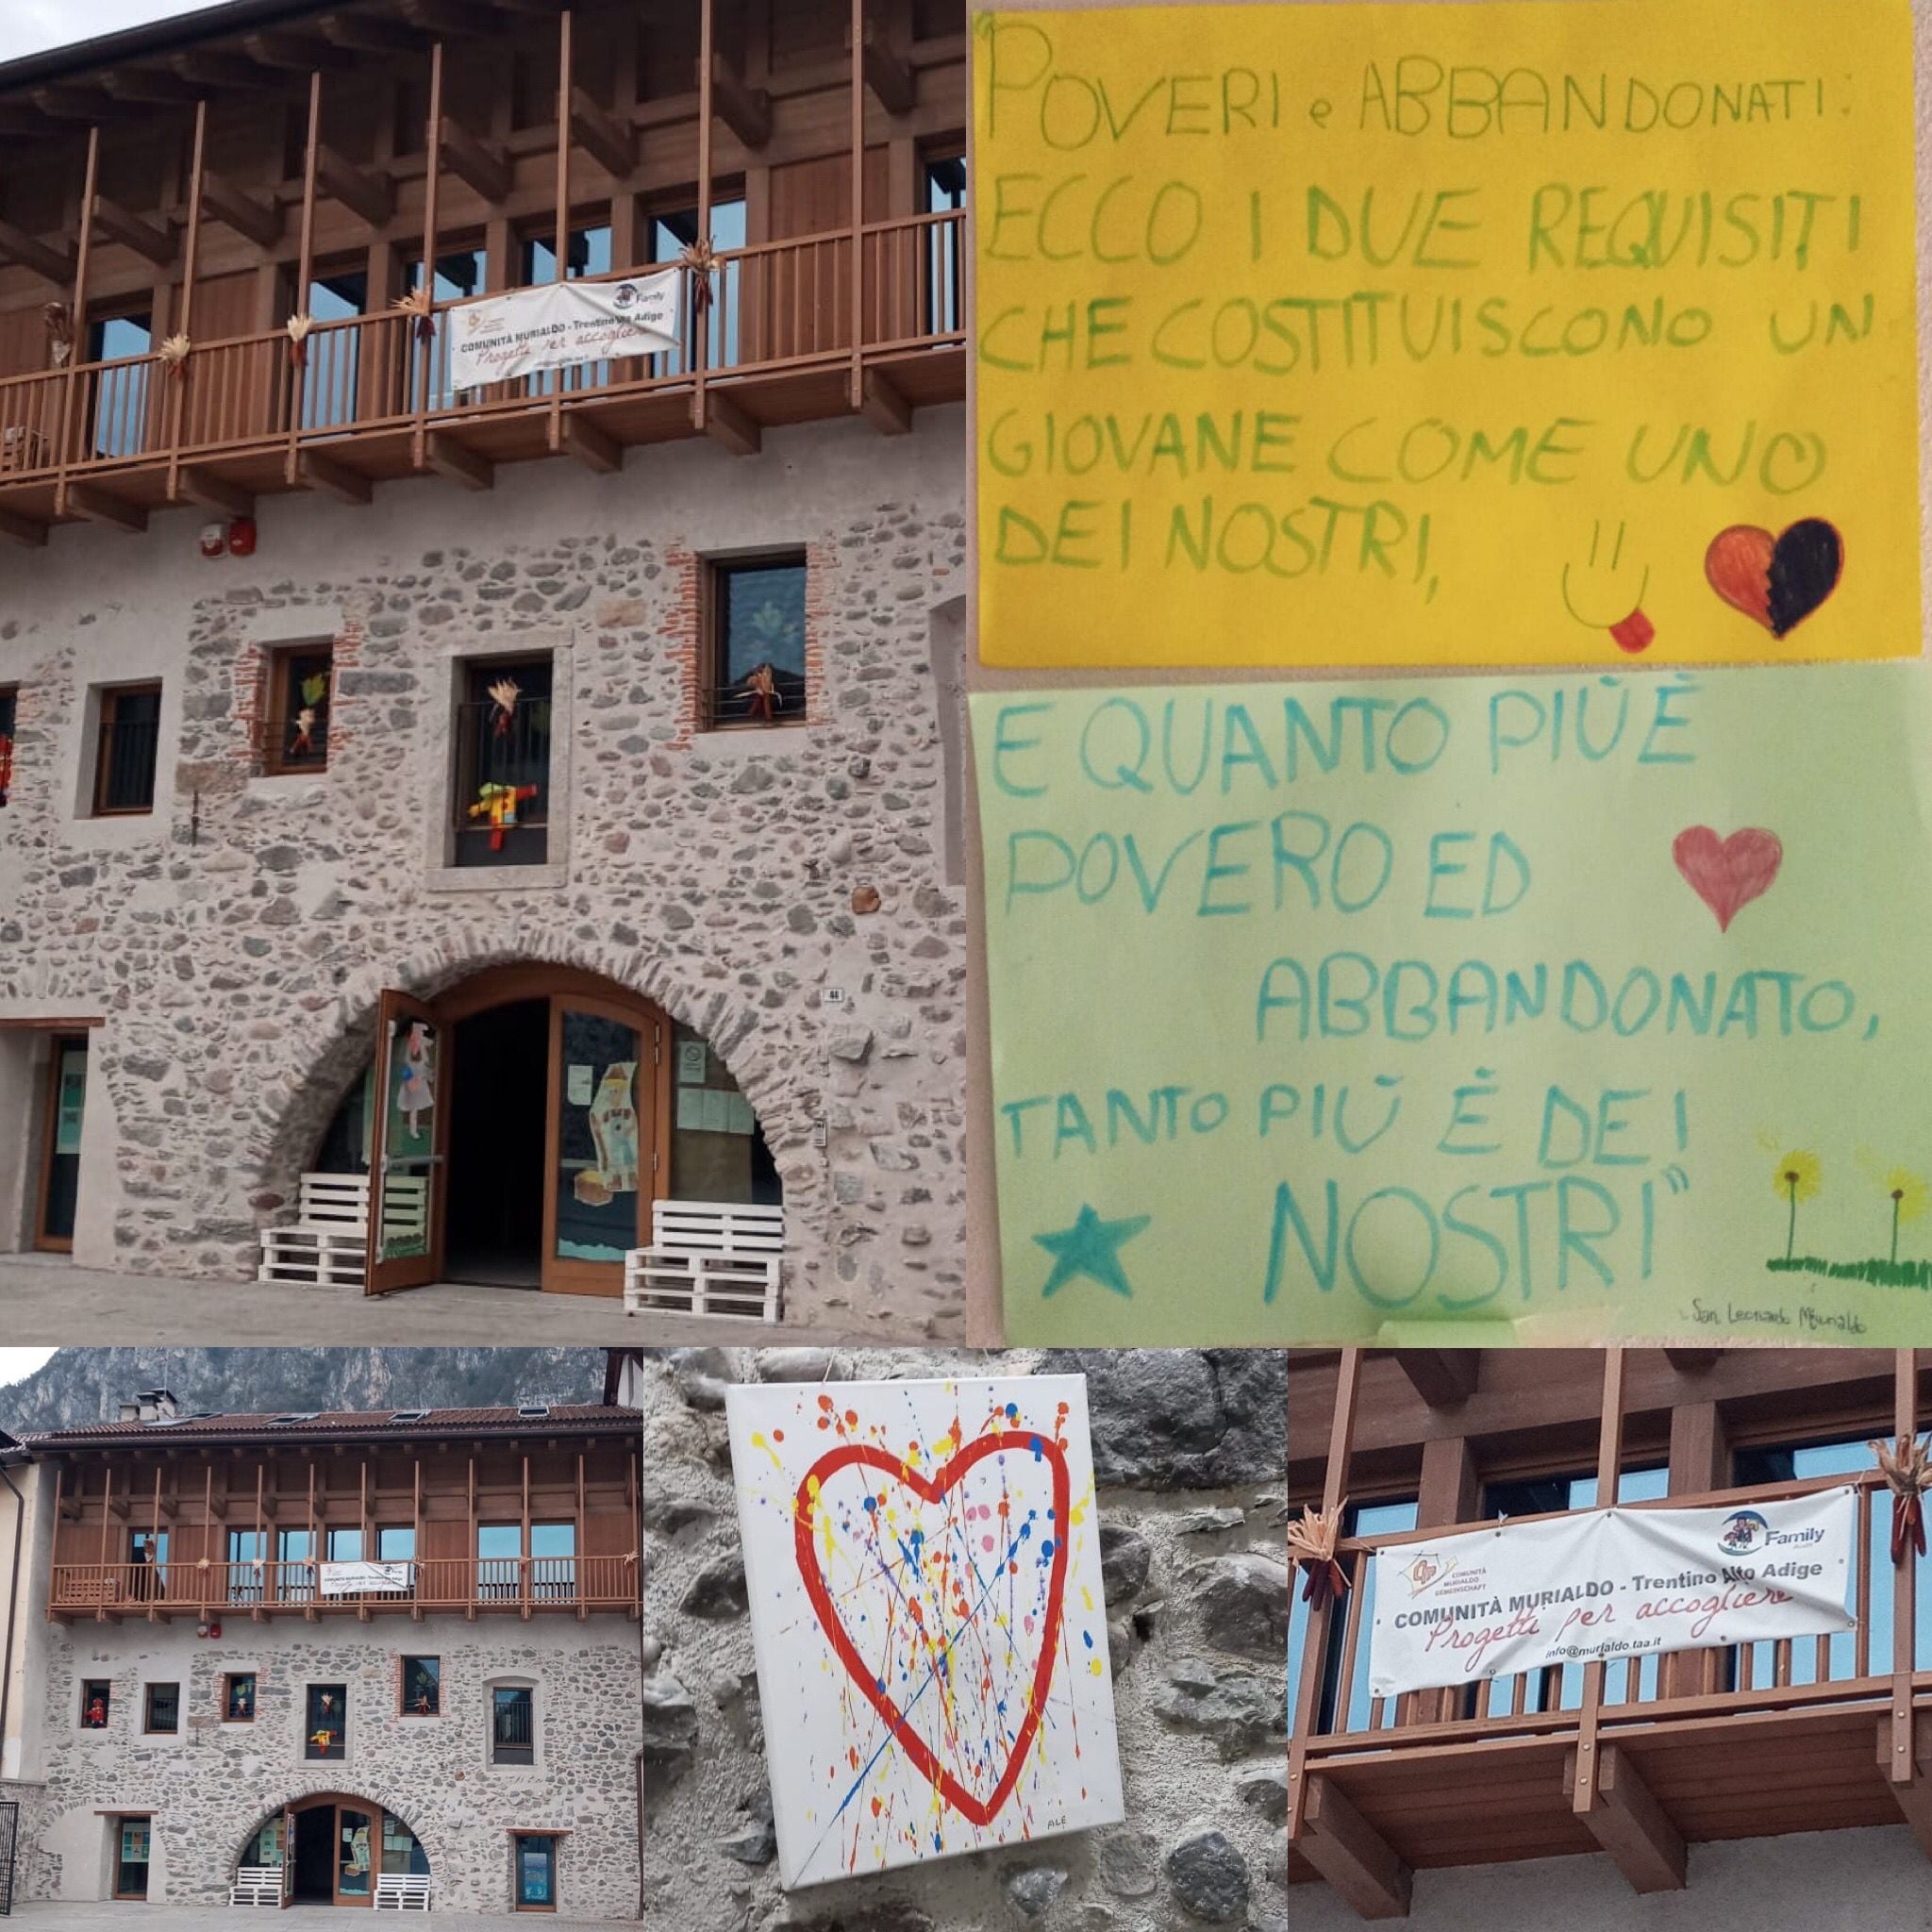 Family
COMUNITÀ MURIALDO - Trentino Alto Adige
Progetti per accogliere
44
"POVERI e ABBANDONATI:
ECCO I DUE REQUISITI
CHE COSTITUISCONO UN
GIOVANE COME UNO
DEI NOSTRI,
E QUANTO PIÙ È
POVERO ED
ABBANDONATO,
TANTO PIÙ È DEI
NOSTRI"
San Leonardo Murialdo
COMUNITÀ MURIALDO - Trentino Alto Adige
Progetti per accogliere
ALE
Family
COMUNITÀ
MURIALDO
GEMEINSCHAFT
COMUNITÀ MURIALDO - Trentino Alto Adige
Progetti per accogliere
info@murialdo.taa.it